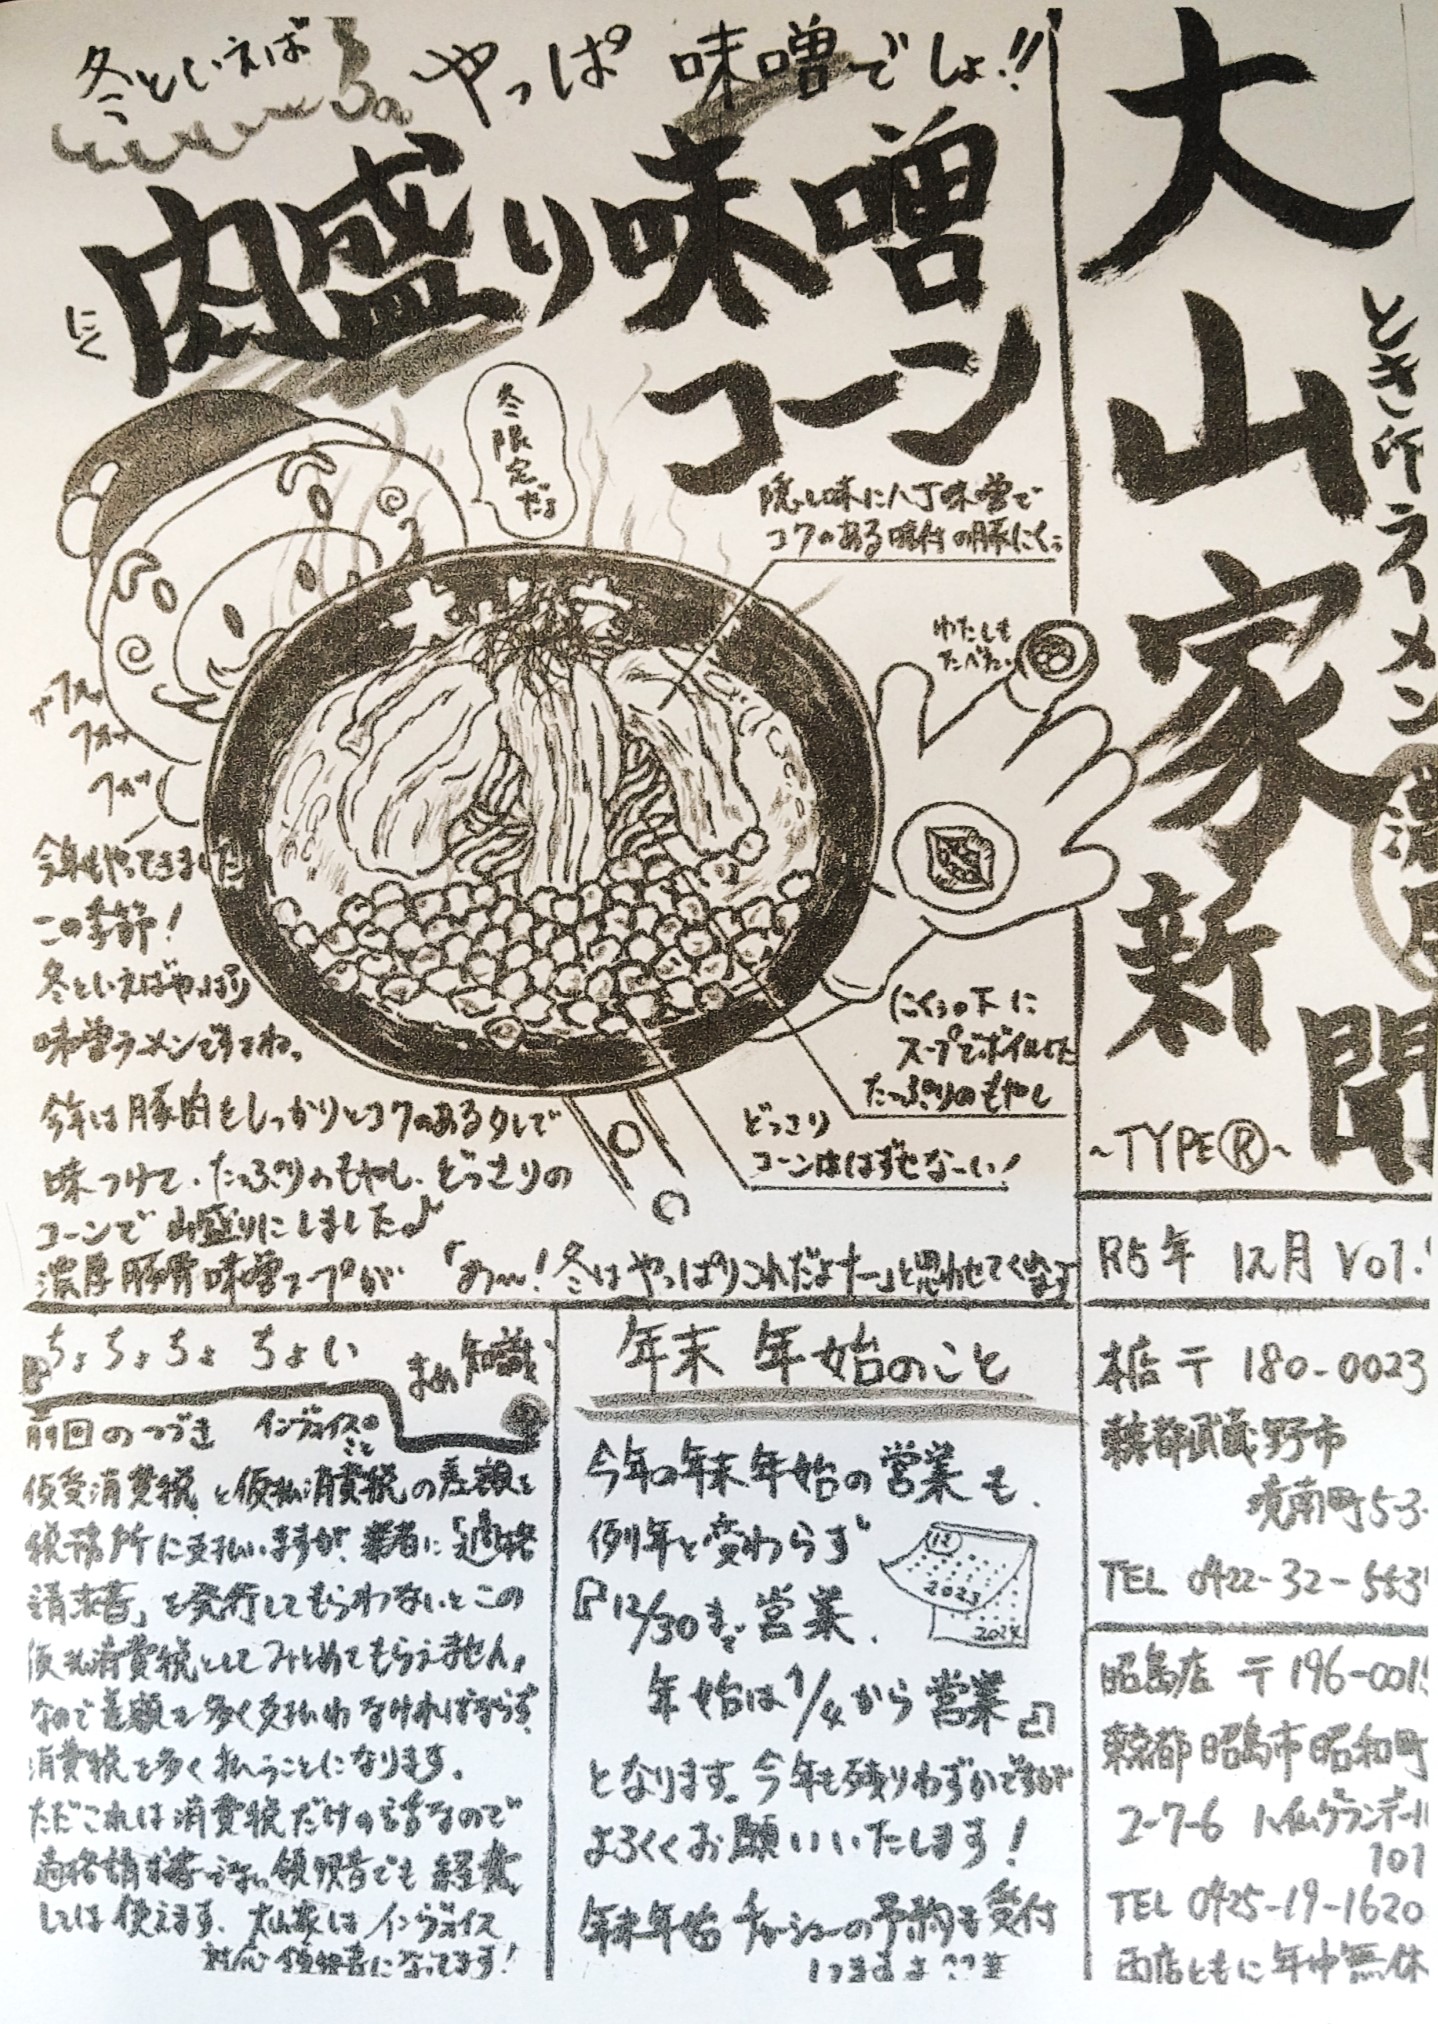 大山家新聞
とき所ラーメン
濃厚
~TYPEⓇ~
R5年 12月 Vol.
本店 〒 180-0023
東京都武蔵野市
境南町 5-3-
TEL 0422-32-553
昭島店 〒 196-001
東京都昭島市昭和町
2-7-6
101
TEL 0425-19-1620
両店ともに年中無休
冬といえば やっぱ 味噌でしょ!!
肉盛り味噌
にく
コーン
冬限定だよ
隠し味に八丁味噌で
コクのある味付の豚にくっ
わたしも
たべたい
フガッ
今年もやってきました
この季節!
冬といえばやっぱり
味噌ラーメンですよね。
今年は豚肉をしっかりとコクのあるタレで
味つけて、たっぷりのもやし、どっさりの
コーンで山盛りにしました♪
濃厚豚骨味噌スープが 「あ〜!冬はやっぱりこれだよナー」と思わせてくれます
にくっの下に
スープでボイルした
たっぷりのもやし
どっさり
コーンははずせなーい!
ちょちょちょ ちょい まめ知識
前回のつづき インヴォイスのこと
仮受消費税と仮払消費税の差額を
税務所に支払いますが、業者に「適格
請求書」を発行してもらわないとこの
仮払消費税としてみとめてもらえません。
なので差額を多く支払わなければならず
消費税を多く払うことになります。
ただこれは消費税だけの話なので
適格請求書じゃない領収書でも経費
としては使えます。大山家はインヴォイス
対応領収書になってます!
年末 年始のこと
今年の年末年始の営業も、
例年と変わらず
『12/30まで営業、
年始は1/4から営業』
12
2023
2024
となります。今年も残りわずかですが
よろしくお願いいたします!
年末年始チャーシューの予約を受付